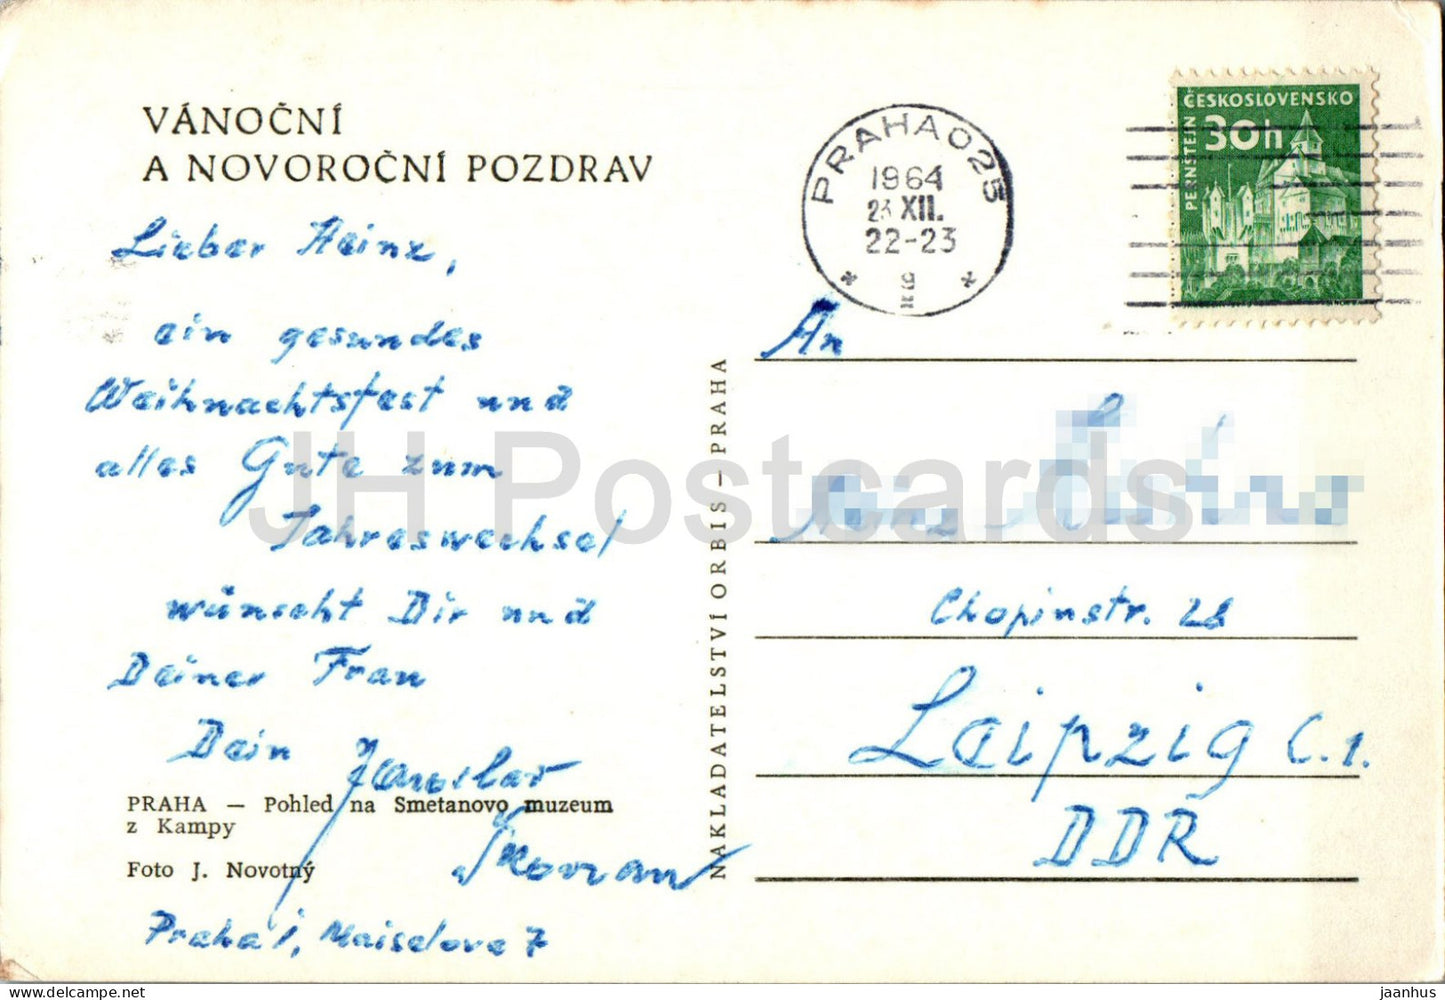 VÁNOČNÍ
A NOVOROČNÍ POZDRAV
Lieber Heinz,
ein gesundes
Weihnachtsfest und
alles Gute zum
Jahreswechsel
wünscht Dir und
Deiner Frau
Dein Jaroslav
PRAHA — Pohled na Smetanovo muzeum
z Kampy
Foto J. Novotný
Praha 1, Maiselova 7
NAKLADATELSTVÍ ORBIS — PRAHA
PRAHA 025
1964
XII.
22-23
ČESKOSLOVENSKO
30h
PERNŠTEJN
An
Heinz
Chopinstr. 28
Leipzig C.1.
DDR
JH Postcards
www.delcampe.net
jaanhus